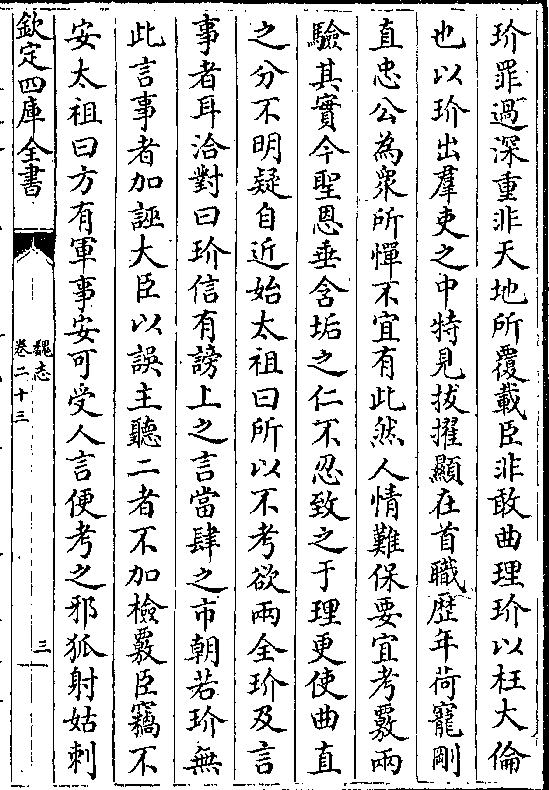 玠罪過深重非天地所覆載臣非敢曲理玠以枉大倫
也以玠出羣吏之中特見拔擢顯在首職歴年荷寵剛
直忠公為衆所憚不宜有此然人情難保要宜考覈兩
驗其實今聖恩垂含垢之仁不忍致之于理更使曲直
之分不明疑自近始太祖曰所以不考欲兩全玠及言
事者耳洽對曰玠信有謗上之言當肆之市朝若玠無
此言事者加誣大臣以誤主聽二者不加檢覈臣竊不
安太祖曰方有軍事安可受人言便考之邪狐射姑刺
欽定四庫全書
魏志
卷二十三
三